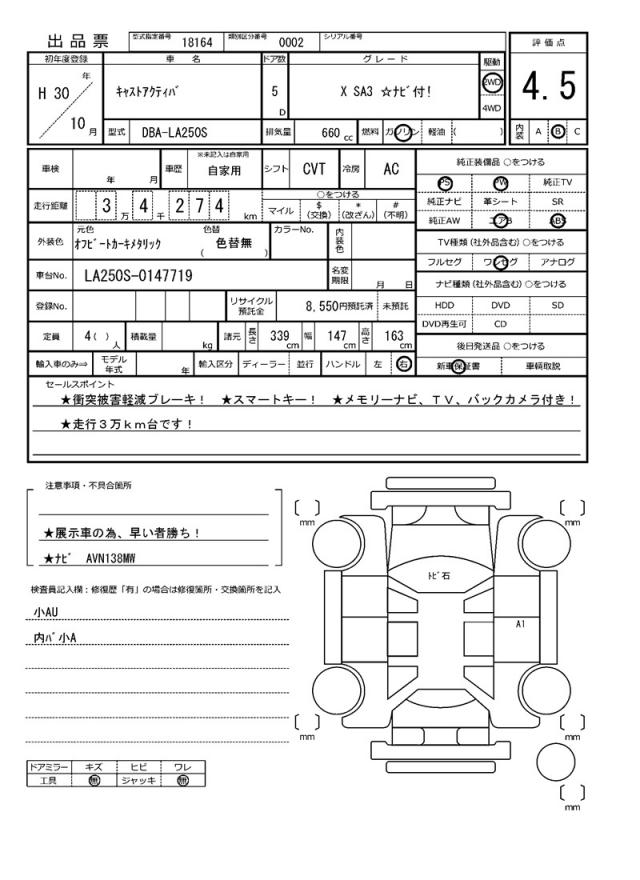 出品票 型式指定番号 18164 類別区分番号 0002 シリアル番号
評価点
4.5
内装 A B C
初年度登録 車名 ドア数 グレード 駆動
H 30 年 10 月 キャストアクティバ 5 D X SA3 ☆ナビ付! 2WD 4WD
型式 DBA-LA250S 排気量 660 cc 燃料 ガソリン 軽油 ( )
車検 年 月 車歴 ※未記入は自家用 自家用 シフト CVT 冷房 AC
走行距離 3 万 4 千 2 7 4 km
○をつける
マイル $(交換) *(改ざん) #(不明)
外装色 元色 オフビートカーキメタリック 色替 色替無 ( ) カラーNo. 内装色
車台No. LA250S-0147719 名変期限 月 日
登録No. リサイクル預託金 8,550円預託済 未預託
定員 4( ) 人 積載量 kg 諸元 長さ 339 cm 幅 147 cm 高さ 163 cm
輸入車のみ⇒ モデル年式 年 輸入区分 ディーラー 並行 ハンドル 左 右
純正装備品 ○をつける
PS PW 純正TV
純正ナビ 革シート SR
純正AW エアB ABS
TV種類(社外品含む)○をつける
フルセグ ワンセグ アナログ
ナビ種類(社外品含む)○をつける
HDD DVD SD
DVD再生可 CD
後日発送品 ○をつける
新車保証書 車輌取説
セールスポイント
★衝突被害軽減ブレーキ! ★スマートキー! ★メモリーナビ、TV、バックカメラ付き!
★走行3万km台です!
注意事項・不具合箇所
★展示車の為、早い者勝ち!
★ナビ AVN138MW
検査員記入欄:修復歴「有」の場合は修復箇所・交換箇所を記入
小AU
内バ小A
ドアミラー キズ ヒビ ワレ
工具 無 ジャッキ 無
[ ] mm
[ ] mm
トビ石
A1
[ ] mm
[ ] mm
[ ] mm